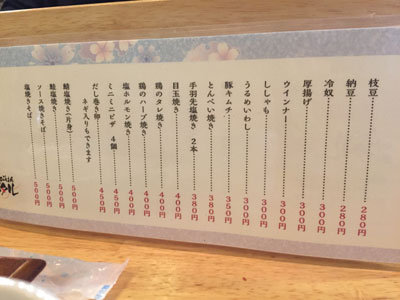 枝豆 280円
納豆 280円
冷奴 300円
厚揚げ 300円
ウインナー 300円
ししゃも 300円
うるめいわし 300円
豚キムチ 350円
とんぺい焼き 380円
手羽先塩焼き 2本 380円
目玉焼き 400円
鶏のタレ焼き 400円
鶏のハーブ焼き 400円
塩ホルモン焼き 400円
ミニミニピザ 4個 450円
だし巻き卵 450円
ネギ入りもできます
鮭塩焼き(片身) 500円
鮭塩焼き 500円
ソース焼きそば 500円
塩焼きそば 500円